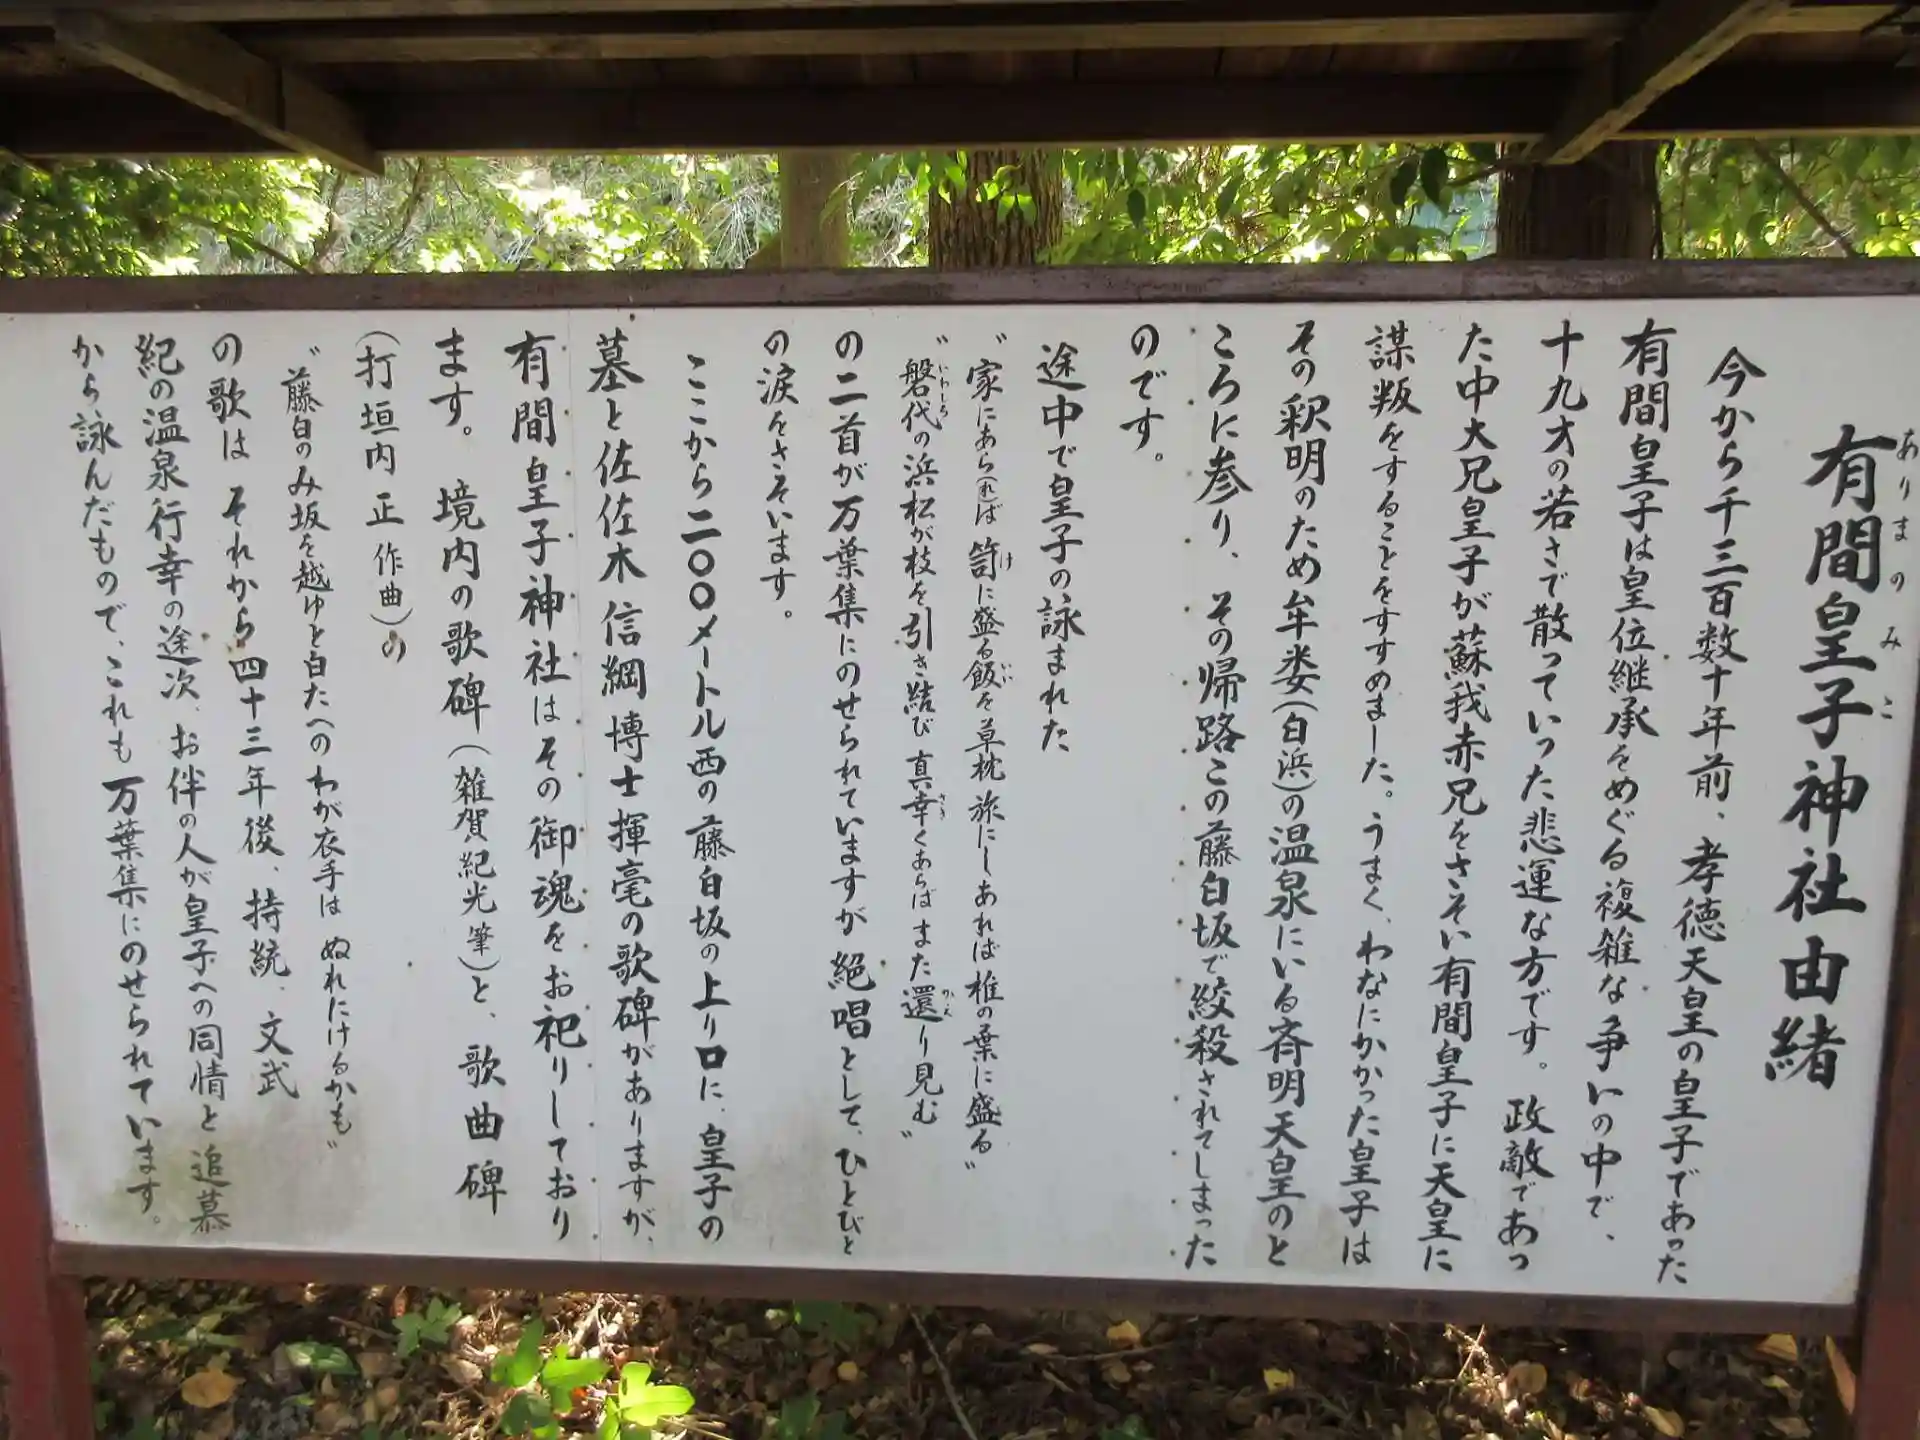 有間皇子神社由緒
ありまのみこ
今から千三百数十年前、孝徳天皇の皇子であった
有間皇子は皇位継承をめぐる複雑な争いの中で、
十九才の若さで散っていった悲運な方です。政敵であっ
た中大兄皇子が蘇我赤兄をさそい有間皇子に天皇に
謀叛をすることをすすめました。うまく、わなにかかった皇子は
その釈明のため牟婁(白浜)の温泉にいる斉明天皇のと
ころに参り、その帰路この藤白坂で絞殺されてしまった
のです。
途中で皇子の詠まれた
〝家にあら(れ)ば笥に盛る飯を草枕旅にしあれば椎の葉に盛る〟
け いい
〝磐代の浜松が枝を引き結び真幸くあらばまた還り見む〟
いわしろ さき かえ
の二首が万葉集にのせられていますが絶唱として、ひとびと
の涙をさそいます。
ここから二〇〇メートル西の藤白坂の上り口に、皇子の
墓と佐佐木信綱博士揮毫の歌碑がありますが、
有間皇子神社はその御魂をお祀りしており
ます。境内の歌碑(雑賀紀光筆)と、歌曲碑
(打垣内正作曲)の
〝藤白のみ坂を越ゆと白たへのわが衣手はぬれにけるかも〟
の歌は それから四十三年後、持統、文武
紀の温泉行幸の途次、お伴の人が皇子への同情と追慕
から詠んだもので、これも万葉集にのせられています。